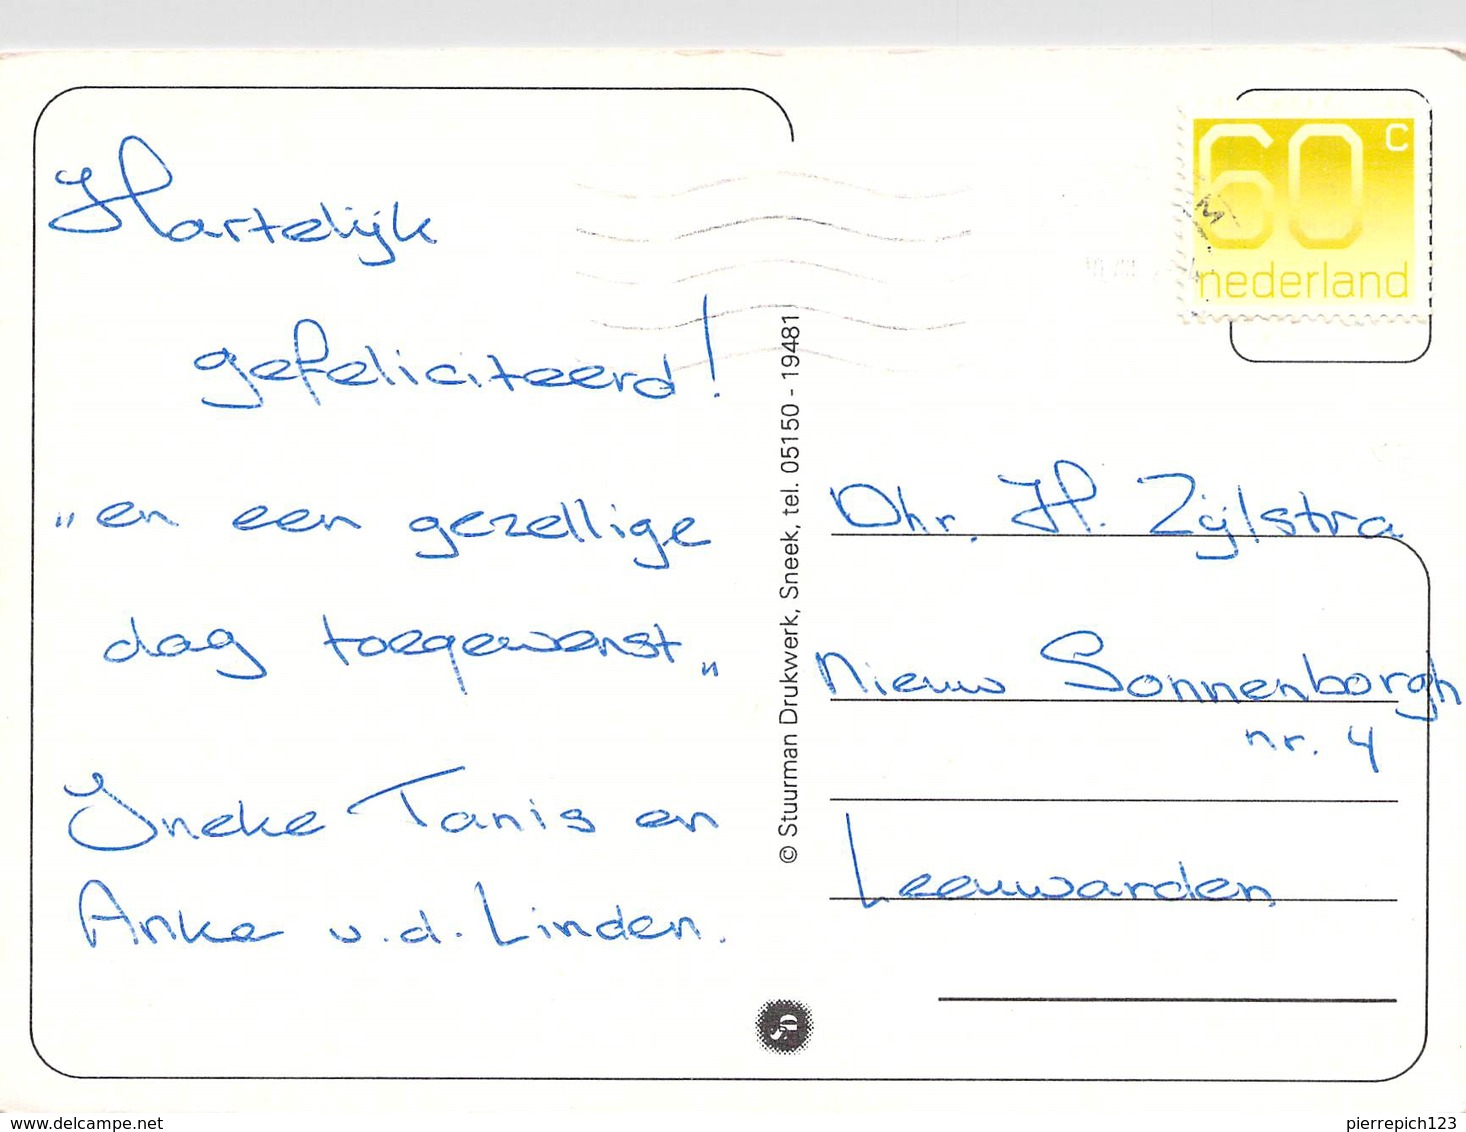 Hartelijk
gefeliciteerd!
„en een gezellige
dag toegewenst„
Ineke Tanis en
Anke v.d. Linden.
© Stuurman Drukwerk, Sneek, tel. 05150 - 19481
SD
60 c
nederland
Dhr. H. Zijlstra
Nieuw Sonnenborgh
nr. 4
Leeuwarden
www.delcampe.net
pierrepich123